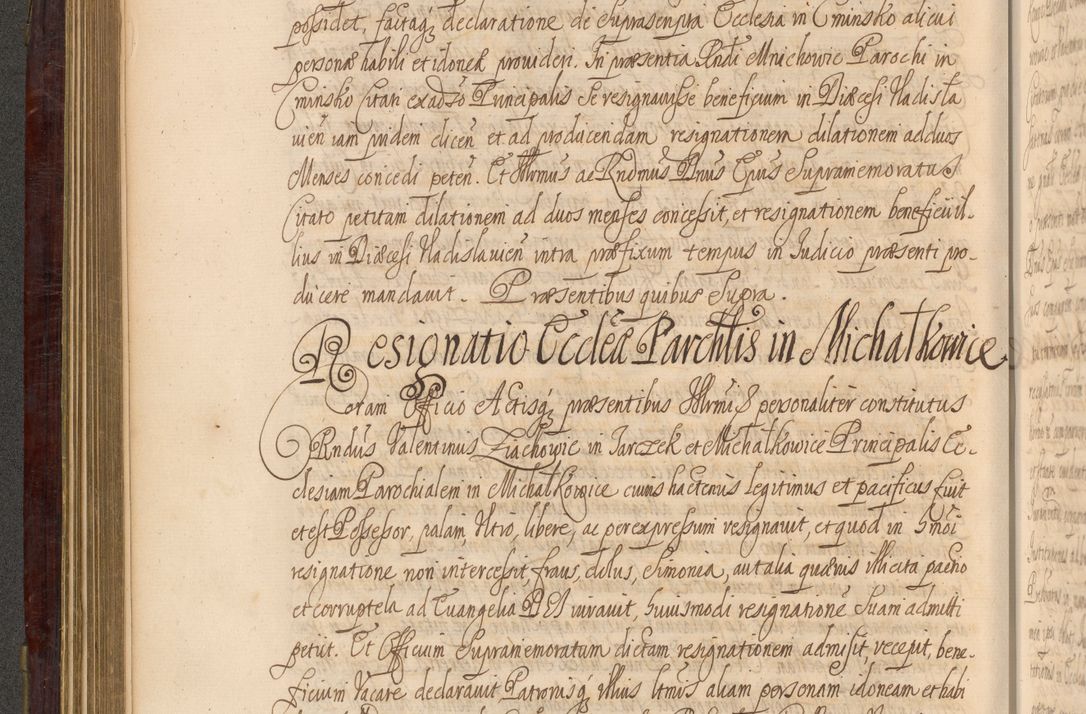 possidet, factaq; declaratione de suprascripta Ecclesia in Cminsko alicui
personæ habili et idoneæ provideri. In præsentia Rndi Mnichowic Parochi in
Cminsko Citati ex adverso Principalis se resignavisse beneficium in Diæcesi Vladisla
vien̄ iam pridem dicen̄ et ad producendam resignationem dilationem ad duos
Menses concedi peten̄. Et Illrmus ac Rndmus Dnus Epus supramemoratus
Citato petitam dilationem ad duos menses concessit, et resignationem beneficii il-
lius in Diæcesi Vladislavien̄ intra præfixum tempus in Iudicio præsenti pro-
ducere mandavit. Præsentibus quibus Supra.
Resignatio Ecclēæ Parchlis in Michałkowice
Coram Officio Actisq; præsentibus Illrmi S personaliter constitutus
Rndus Valentinus Ziachowic in Jarczek et Michałkowice Principalis Ec-
clesiam Parochialem in Michałkowice cuius hactenus legitimus et pacificus fuit
et est Possessor, palam, Vltro, libere, ac per expressum resignavit, et quod in hmōi
resignatione non intercessit, fraus, dolus, Simonea, aut alia quævis illicita pactio
et corruptela ad Evangelia DEI iuravit, huiusmodi resignatione suam admitti
petiit. Et Officium Supramemoratum dictam resignationem admisit, recepit, bene-
ficium Vacare declaravit Patronisq; illius ltmus aliam personam idoneam et habi